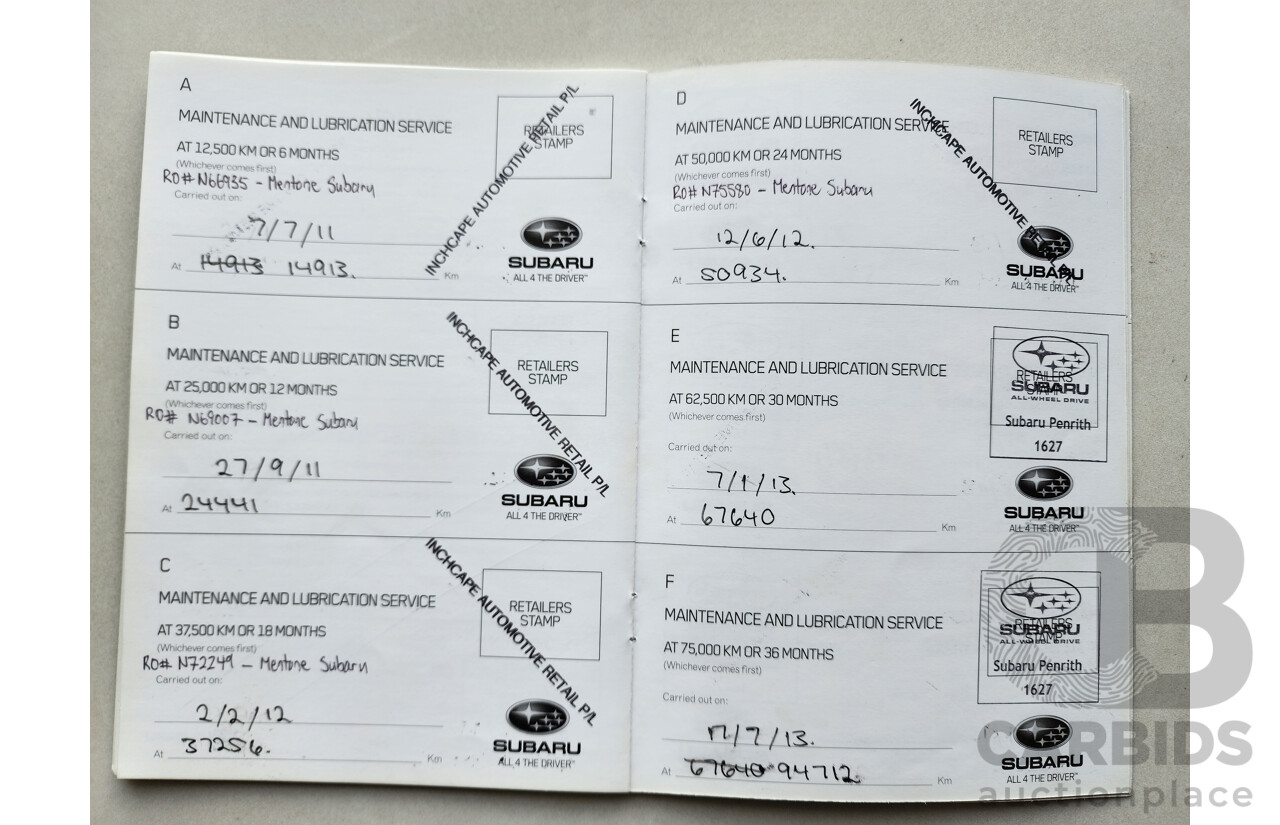 A
MAINTENANCE AND LUBRICATION SERVICE
AT 12,500 KM OR 6 MONTHS
(Whichever comes first)
RO# N66935 - Mentone Subaru
Carried out on:
7/7/11
At 14913 14913. Km
RETAILERS
STAMP
INCHCAPE AUTOMOTIVE RETAIL P/L
SUBARU
ALL 4 THE DRIVER™
B
MAINTENANCE AND LUBRICATION SERVICE
AT 25,000 KM OR 12 MONTHS
(Whichever comes first)
RO# N69007 - Mentone Subaru
Carried out on:
27/9/11
At 24441 Km
RETAILERS
STAMP
INCHCAPE AUTOMOTIVE RETAIL P/L
SUBARU
ALL 4 THE DRIVER™
C
MAINTENANCE AND LUBRICATION SERVICE
AT 37,500 KM OR 18 MONTHS
(Whichever comes first)
RO# N72249 - Mentone Subaru
Carried out on:
2/2/12
At 37256. Km
RETAILERS
STAMP
INCHCAPE AUTOMOTIVE RETAIL P/L
SUBARU
ALL 4 THE DRIVER™
D
MAINTENANCE AND LUBRICATION SERVICE
AT 50,000 KM OR 24 MONTHS
(Whichever comes first)
RO# N75580 - Mentone Subaru
Carried out on:
12/6/12.
At 50934. Km
RETAILERS
STAMP
INCHCAPE AUTOMOTIVE
SUBARU
ALL 4 THE DRIVER™
E
MAINTENANCE AND LUBRICATION SERVICE
AT 62,500 KM OR 30 MONTHS
(Whichever comes first)
Carried out on:
7/1/13.
At 67640 Km
RETAILERS
STAMP
SUBARU
ALL-WHEEL DRIVE
Subaru Penrith
1627
SUBARU
ALL 4 THE DRIVER™
F
MAINTENANCE AND LUBRICATION SERVICE
AT 75,000 KM OR 36 MONTHS
(Whichever comes first)
Carried out on:
17/7/13.
At 67640 94712. Km
RETAILERS
STAMP
SUBARU
ALL-WHEEL DRIVE
Subaru Penrith
1627
SUBARU
ALL 4 THE DRIVER™
B
CARBIDS
auctionplace